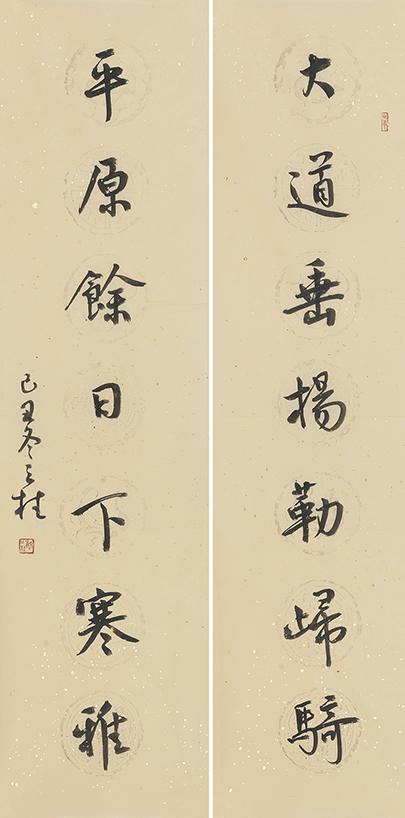 大道垂揚勒歸騎
平原餘日下寒雅
己丑冬之柱